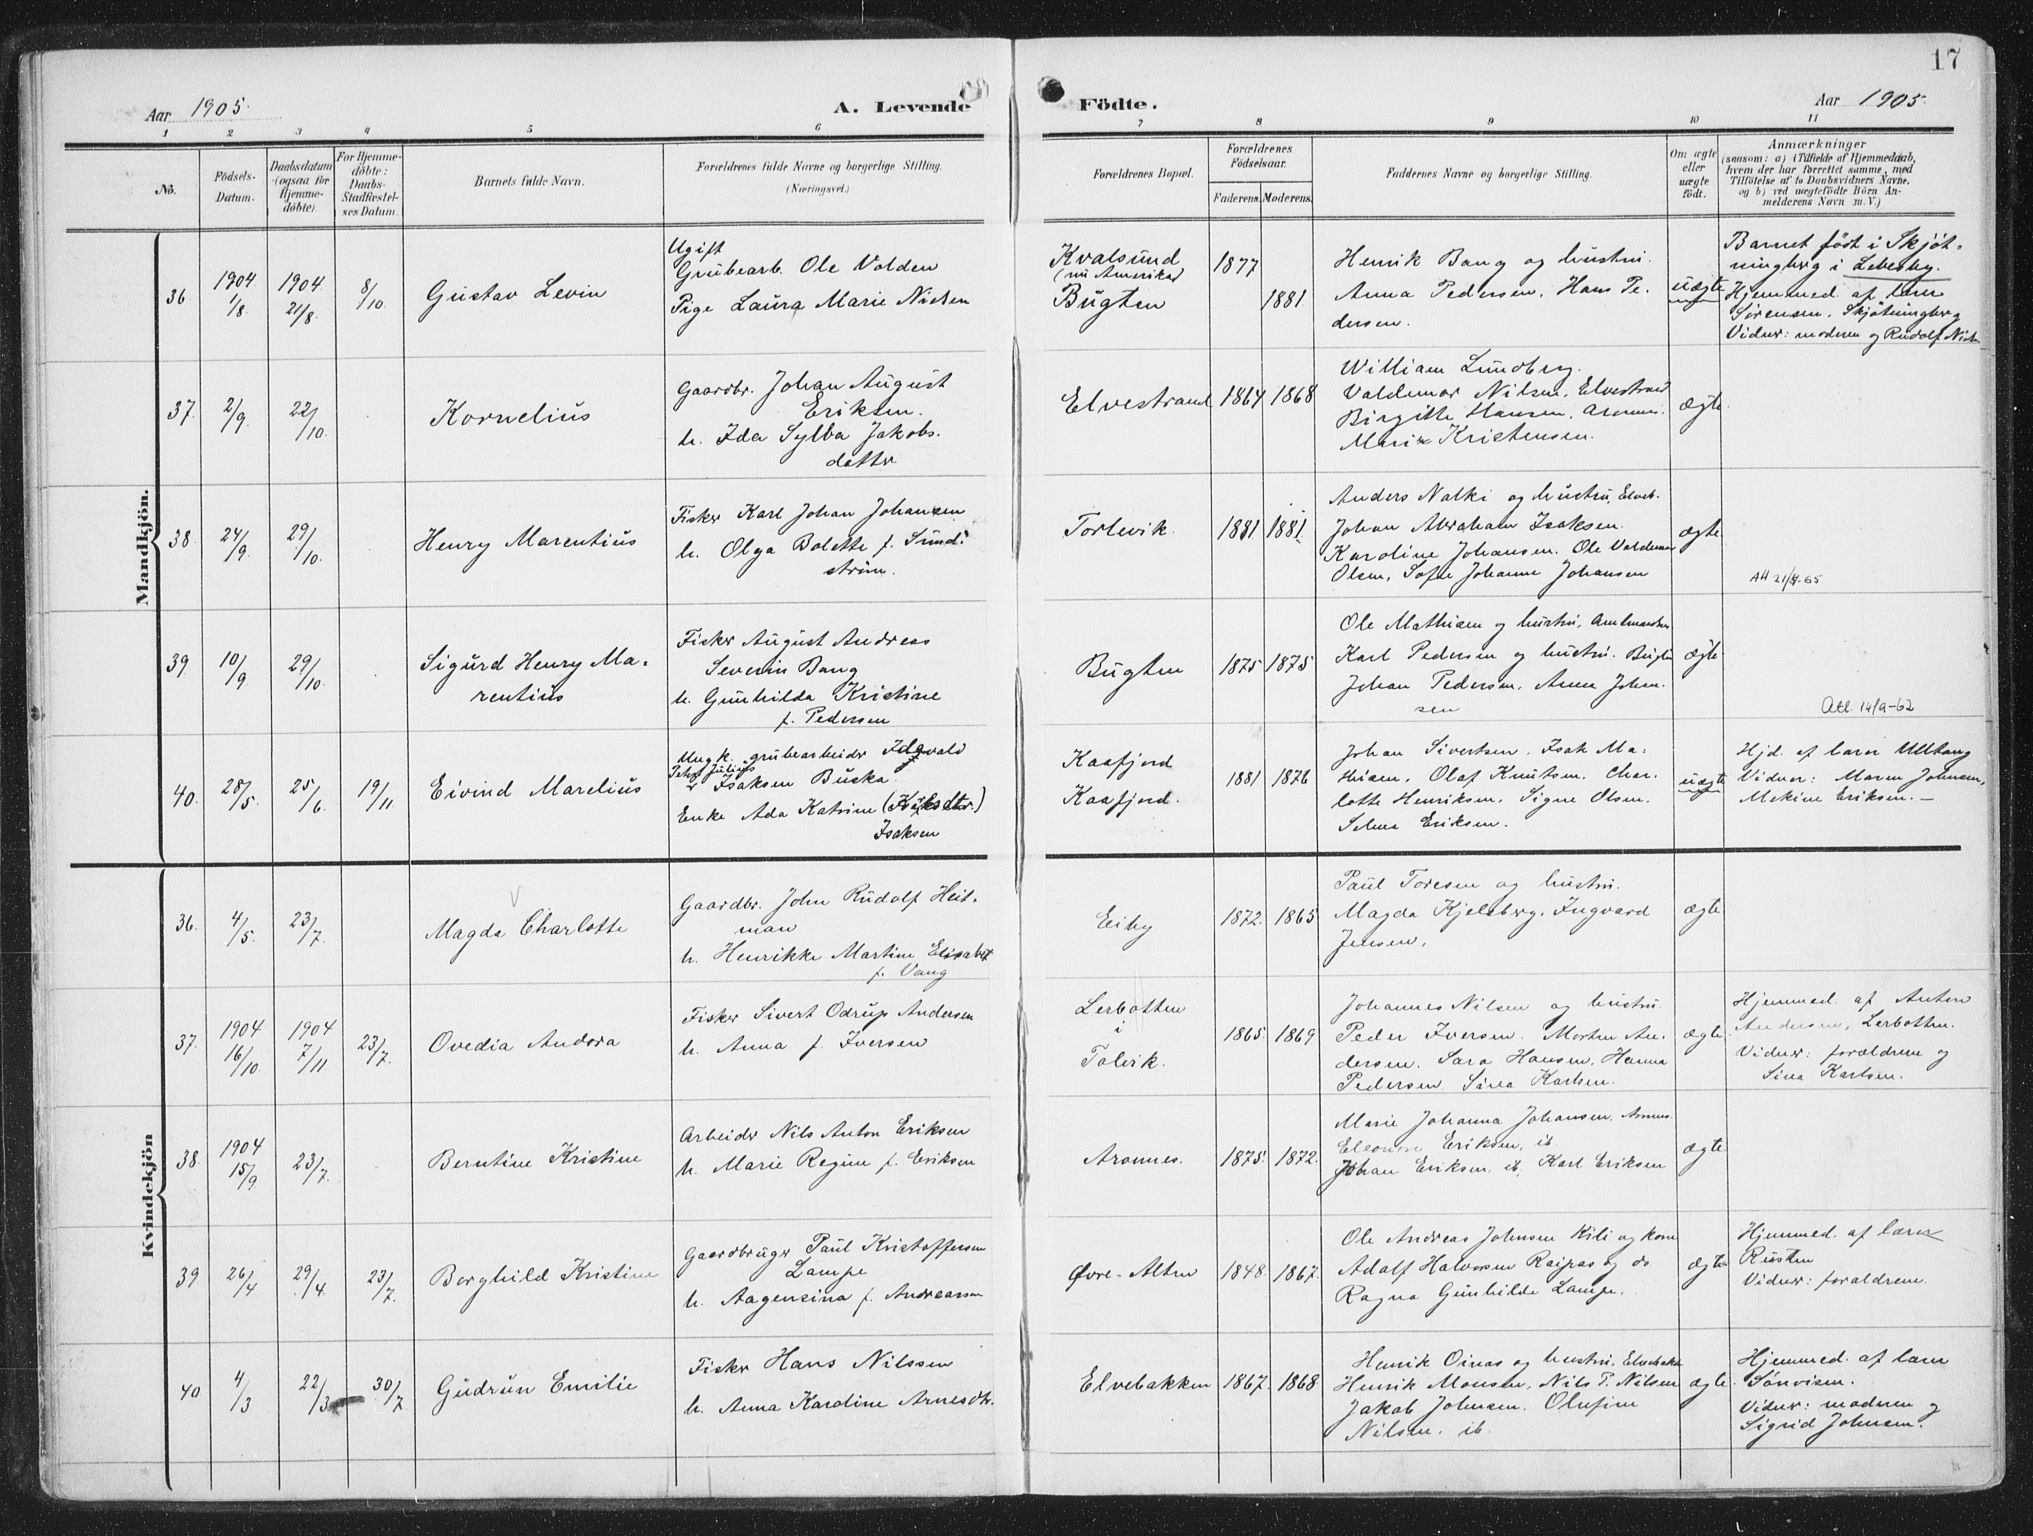 17
Aar 1905.
A. Levende
Födte.
Aar 1905.
1 2 3 4 5 6 7 8 9 10 11
No.
Födsels-
Datum.
Daabsdatum
(ogsaa for
Hjemme-
döbte)
For Hjemme-
döbte:
Daabs-
Stadfæstel-
ses Datum.
Barnets fulde Navn.
Forældrenes fulde Navne og borgerlige Stilling.
(Næringsvei.)
Forældrenes Bopæl.
Forældrenes
Födselsaar.
Faderens. Moderens.
Faddernes Navne og borgerlige Stilling.
Om ægte
eller
uægte
födt.
Anmærkninger
(saasom: a) i Tilfælde af Hjemmedaab,
hvem der har forrettet samme, med
Tilföielse af to Daabsvidners Navne,
og b) ved uægtefödte Börn An-
melderens Navn m. V.)
Mandkjön.
36
1904
1/8
1904
21/8
8/10.
Gustav Levin
Ugift
Grubearb. Ole Volden
Pige Laura Marie Nielsen
Kvalsund
(nu Amerika)
Bugten
1877
1881
Henrik Bang og hustru.
Anna Pedersen, Hans Pe-
dersen.
uægte
Barnet født i Skjøt-
ningberg i Lebesby.
Hjemmed. af lærer
Sørensen, Skjøtningberg
Vidner: moderen og Rudolf
37.
2/9.
22/10.
Kornelius
Gaardbr. Johan August
Eriksen.
h. Ida Sylba Jakobs.
datter
Elvestrand
1864
1868
William Lundberg.
Valdemar Nilsen, Elvestrand
Birgitte Hansen, Aronnes.
Marie Kristensen.
ægte
38.
24/9.
29/10.
Henry Marentius
Fisker Karl Johan Johansen
h. Olga Bolette f. Sund-
strøm.
Torlevik.
1881
1881.
Anders Nalki og hustru, Elveb.
Johan Abraham Isaksen.
Karoline Johansen. Ole Valdemar
Olsen, Sofie Johanne Johansen
ægte
39.
10/9.
29/10.
Sigurd Henry Ma-
rentius
Fisker August Andreas
Severin Bang
h. Gunhilda Kristine
f. Pedersen
Bugten
1875
1875
Ole Mathisen og hustru,
Karl Pedersen og hustru. Bugten
Johan Pedersen, Anna Johan.
sen
ægte
Att. 14/9-62
40.
28/5.
25/6.
19/11.
Eivind Marelius
Ungk. grubearbeider
Peter Julius
Isaksen Buska.
Enke Ada Katrine
Isaksen
Kaafjord
Kaafjord.
1881
1876
Johan Sivertsen. Isak Ma-
thisen, Olaf Knutsen. Char-
lotte Henriksen. Signe Olsen.
Selma Eriksen.
uægte
Hjd. af lærer Ulltang
Vidner: Maren Johnsen,
Mekine Eriksen. —
Kvindekjön
36.
4/5.
23/7.
Magda Charlotte
Gaardbr. John Rudolf Heit-
man
h. Henrikke Martine Elisabet
f. Vang
Eiby
1872.
1865
Paul Toresen og hustru.
Magda Kjelsberg, Ingvard
Jensen.
ægte
37.
1904
16/10.
1904
7/11
23/7.
Ovedia Andora
Fisker Sivert Odrup Andersen
h. Anna f. Iversen
Lerbotten
i
Talvik.
1865.
1869
Johannes Nilsen og hustru.
Peder Iversen. Morten An-
dersen. Sara Hansen, Hanna
Pedersen. Sina Karlsen.
ægte
Hjemmed. af Anton
Andersen, Lerbotten.
Vidner: forældrene og
Sina Karlsen.
38.
1904
15/9.
23/7.
Berntine Kristine
Arbeider Nils Anton Eriksen
h. Marie Regine f. Eriksen
Aronnes.
1875.
1872.
Marie Johanna Johansen, Aronnes.
Eleonore Eriksen, ib
Johan Eriksen ib, Karl Eriksen
ægte
39.
26/4
29/4.
23/7.
Borghild Kristine
Gaardbruger Paul Kristoffersen
Lampe
h. Aagensina f. Andreassen
Øvre-Alten
1848.
1867.
Ole Andreas Johnsen Kili og kone
Adolf Halvorsen Raipas og do
Ragna Gunhilde Lampe.
ægte
Hjemmed. af lærer
Rusten
Vidner: forældrene.
40
4/3
22/3
30/7
Gudrun Emilie
Fisker Hans Nilssen
h. Anna Karoline Arnesdtr.
Elvebakken
1867.
1868
Henrik Oinas og hustru, Elvebakk
Henrik Monsen, Nils P. Nilsen
Jakob Johnsen. Olufine
Nilsen. ib.
ægte
Hjemmed. af lærer
Sønvisen.
Vidner: moderen og
Sigrid Johnsen.